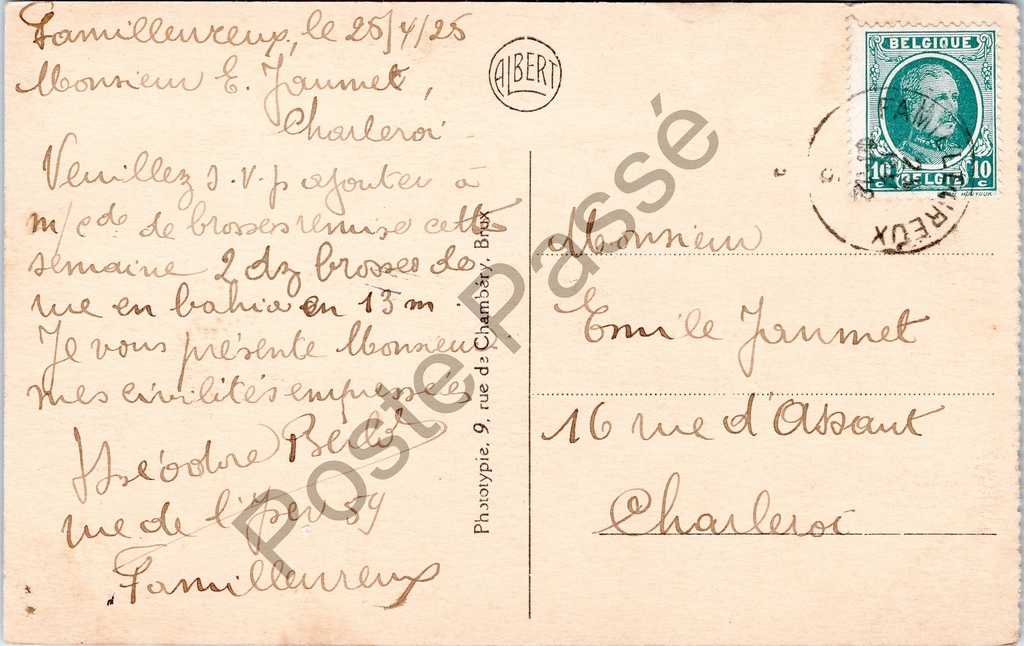 Familleureux, le 25/4/25
Monsieur E. Jaumet,
Charleroi
Veuillez s.v.p ajouter à
m/cde de brosses remise cette
semaine 2 dz brosses de
rue en bahia en 13 m
Je vous présente Monsieur
mes civilités empressées
Théodore
rue de l' 59
Familleureux
ALBERT
Phototypie. 9, rue de Chambéry, Brux
BELGIQUE
10 c BELGIË 10 c
FAMILLEUREUX
Monsieur
Emile Jaumet
16 rue d'Assaut
Charleroi
Poste Passé